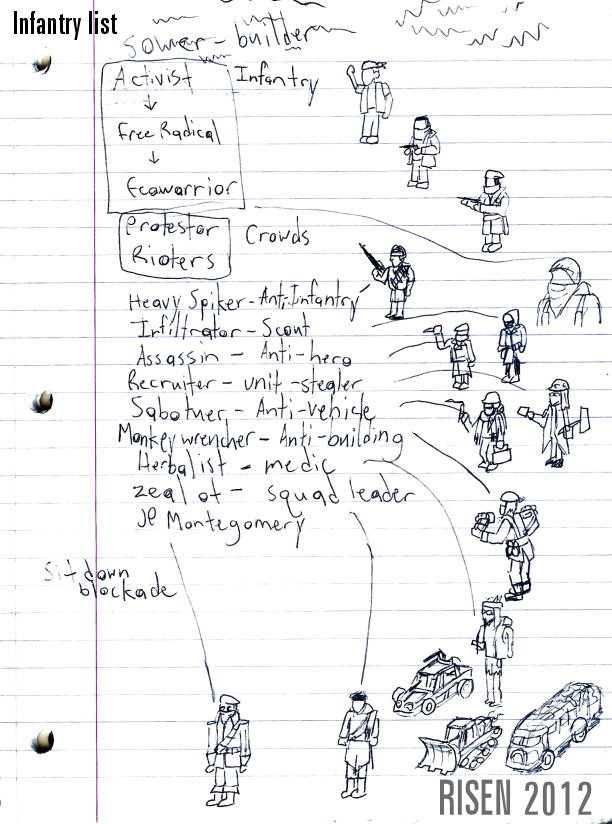 Infantry list
Sower - builder
Activist Infantry
↓
Free Radical
↓
Ecowarrior
Protestor Crowds
Rioters
Heavy Spiker - Anti-Infantry
Infiltrator - Scout
Assassin - Anti-hero
Recruiter - unit-stealer
Sabotuer - Anti-vehicle
Monkeywrencher - Anti-building
Herbalist - medic
Zealot - squad leader
JP Montegomery
Sit down
blockade
RISEN 2012